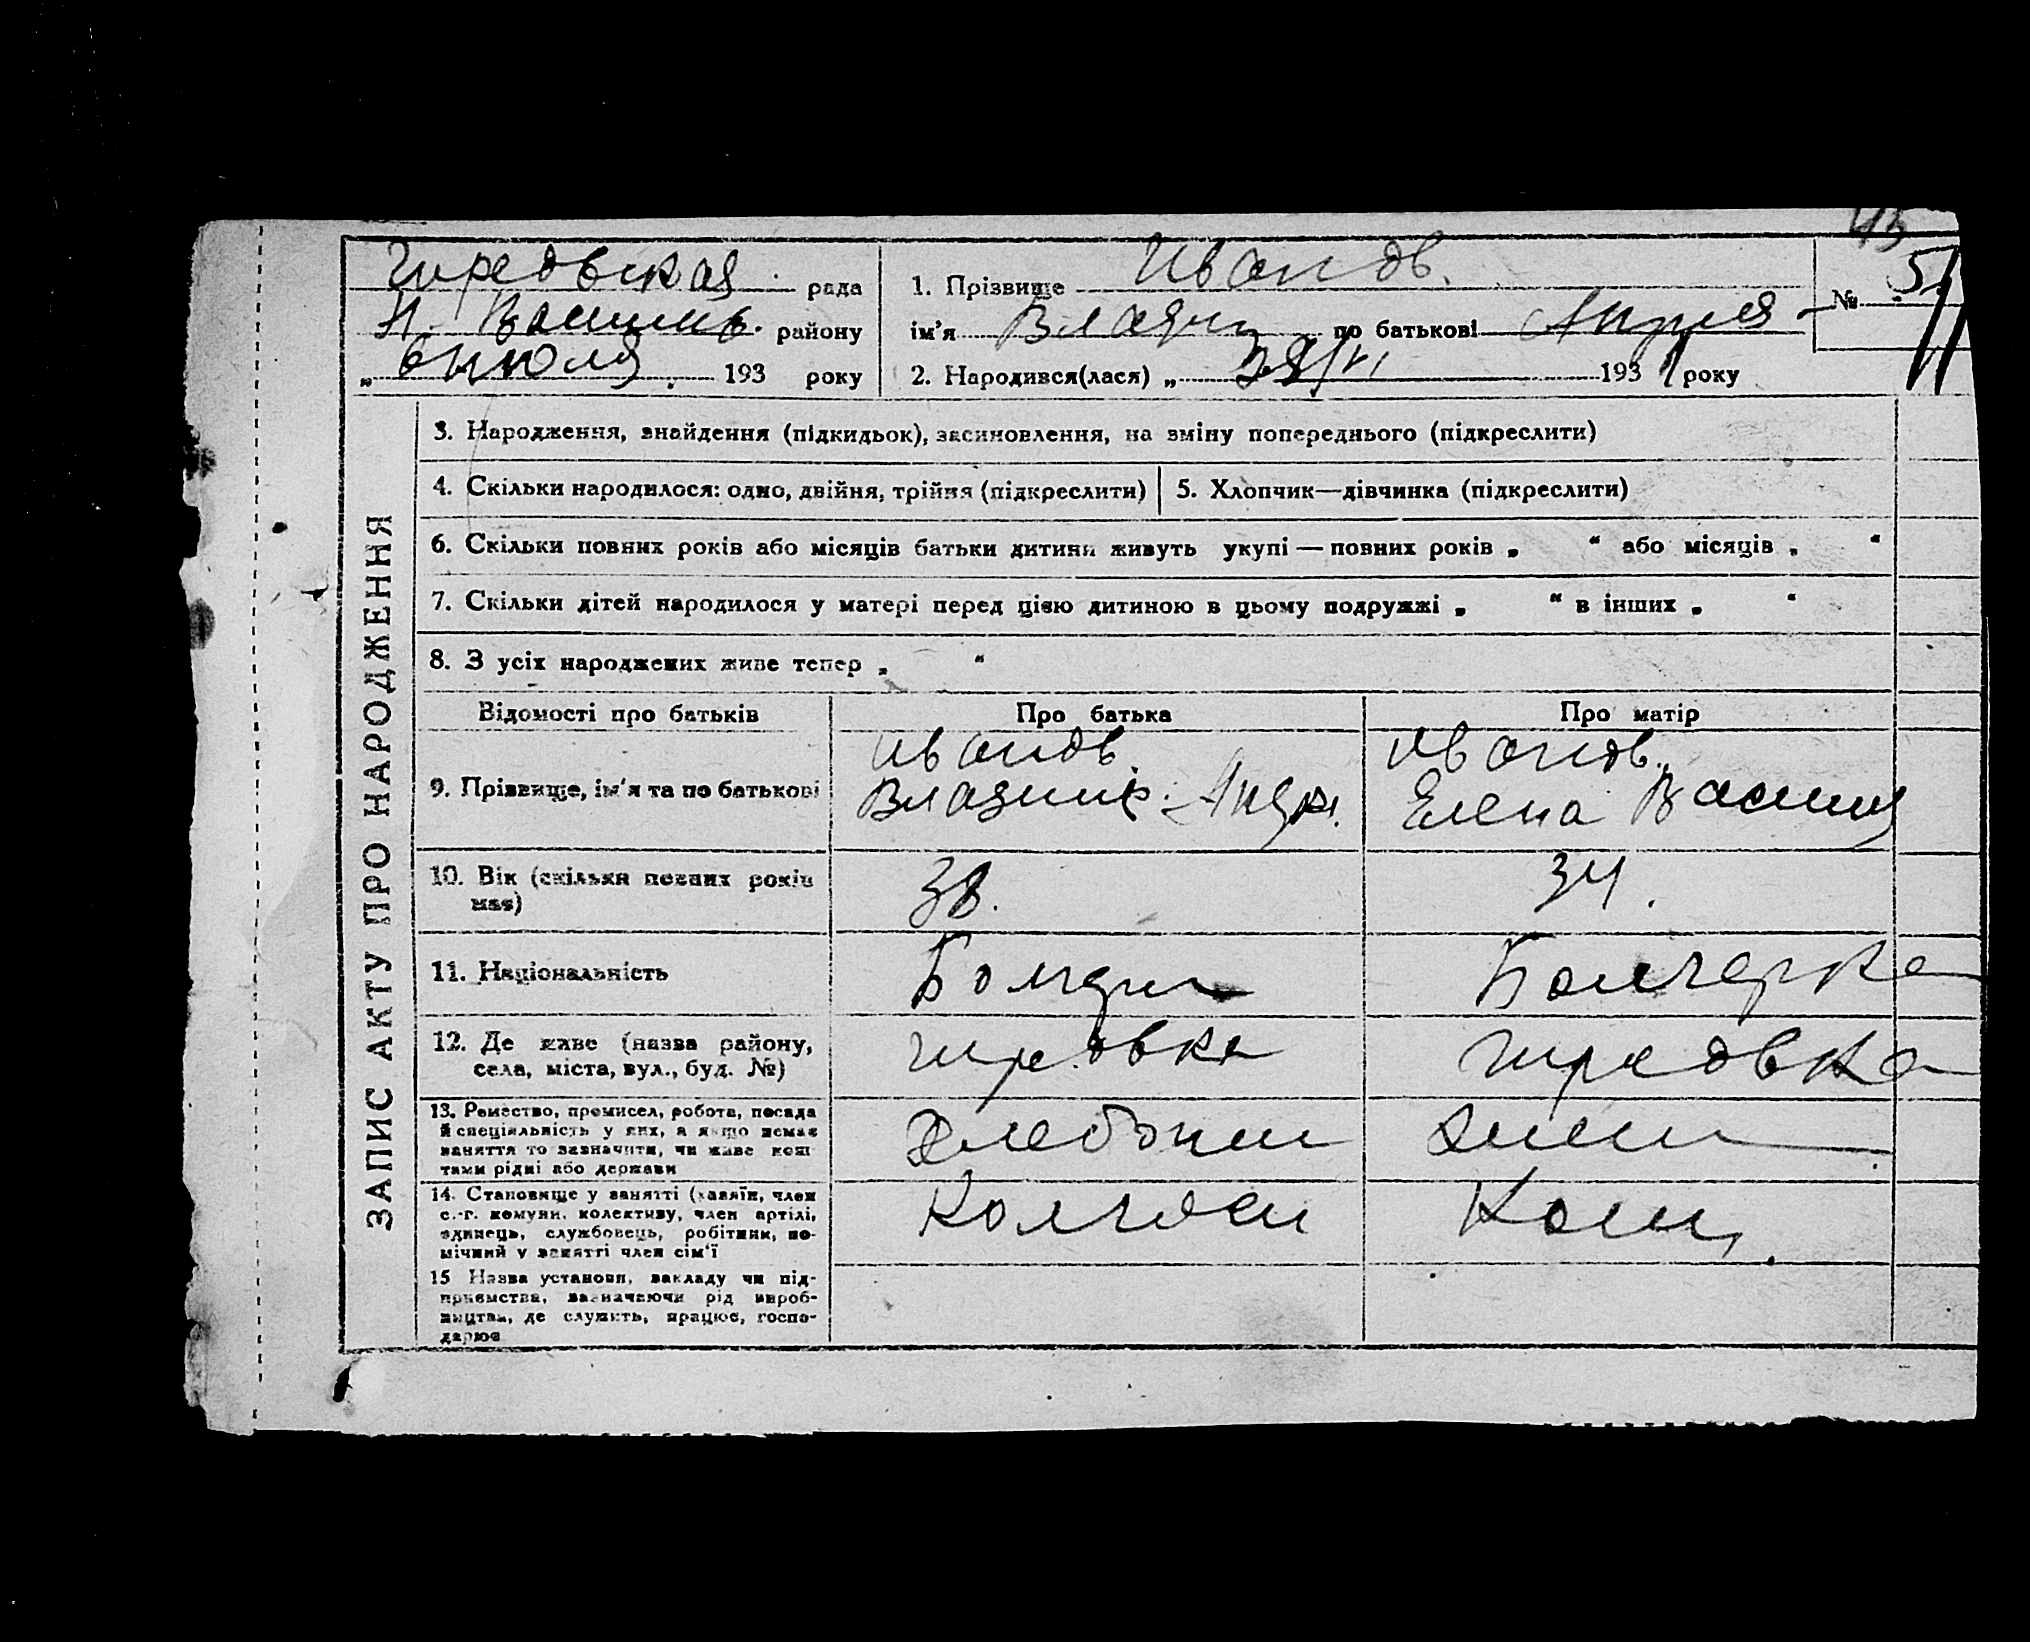 45
Гиредвская рада
Н. Васильев. району
„ 6 июля 193 року
1. Прізвище Иванов.
ім'я по батькові Андрея
№ 51
2. Народився(лася) „ 28/VI 193 року
ЗАПИС АКТУ ПРО НАРОДЖЕННЯ
3. Народження, знайдення (підкидьок), засиновлення, на зміну попереднього (підкреслити)
4. Скільки народилося: одно, двійня, трійня (підкреслити)
5. Хлопчик—дівчинка (підкреслити)
6. Скільки повних років або місяців батьки дитини живуть укупі — повних років „ “ або місяців „ “
7. Скільки дітей народилося у матері перед цією дитиною в цьому подружжі „ “ в інших „ “
8. З усіх народжених живе тепер „ “
Відомості про батьків
Про батька
Про матір
9. Прізвище, ім'я та по батькові
Иванов.
Владимир. Андр.
Иванов.
Елена Васил
10. Вік (скільки повних років
має)
38.
34.
11. Національність
Болгарин
Болгарка
12. Де живе (назва району,
села, міста, вул., буд. №)
Гиредвка
Гиредвка
13. Ремество, промисел, робота, посада
й спеціяльність у них, а якщо немає
заняття то зазначити, чи живе кош-
тами рідні або держави
Хлебопаш
14. Становище у занятті (хазяїн, член
с.-г. комуни, колективу, член артілі,
одинець, службовець, робітник, по-
мічний у занятті член сім'ї
Колгосп
15 Назва установи, закладу чи під-
приємства, зазначаючи рід вироб-
ництва, де служить, працює, госпо-
дарює